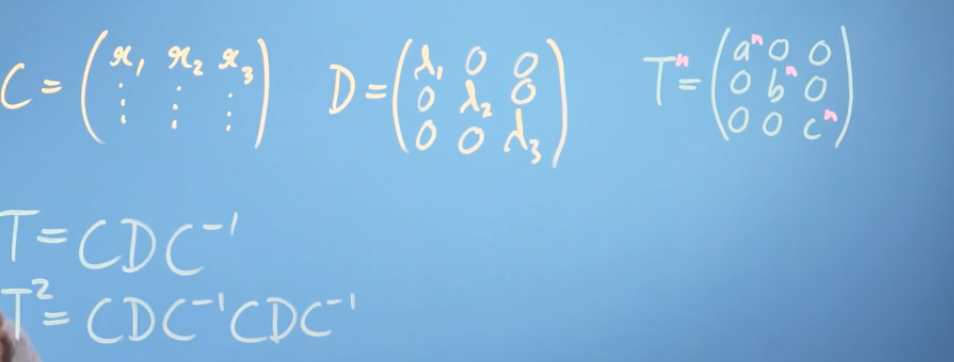 C = (x₁ x₂ x₃ ⋮ ⋮ ⋮) D = (λ₁ 0 0 0 λ₂ 0 0 0 λ₃) Tⁿ = (aⁿ 0 0 0 bⁿ 0 0 0 cⁿ)
T = CDC⁻¹
T² = CDC⁻¹CDC⁻¹